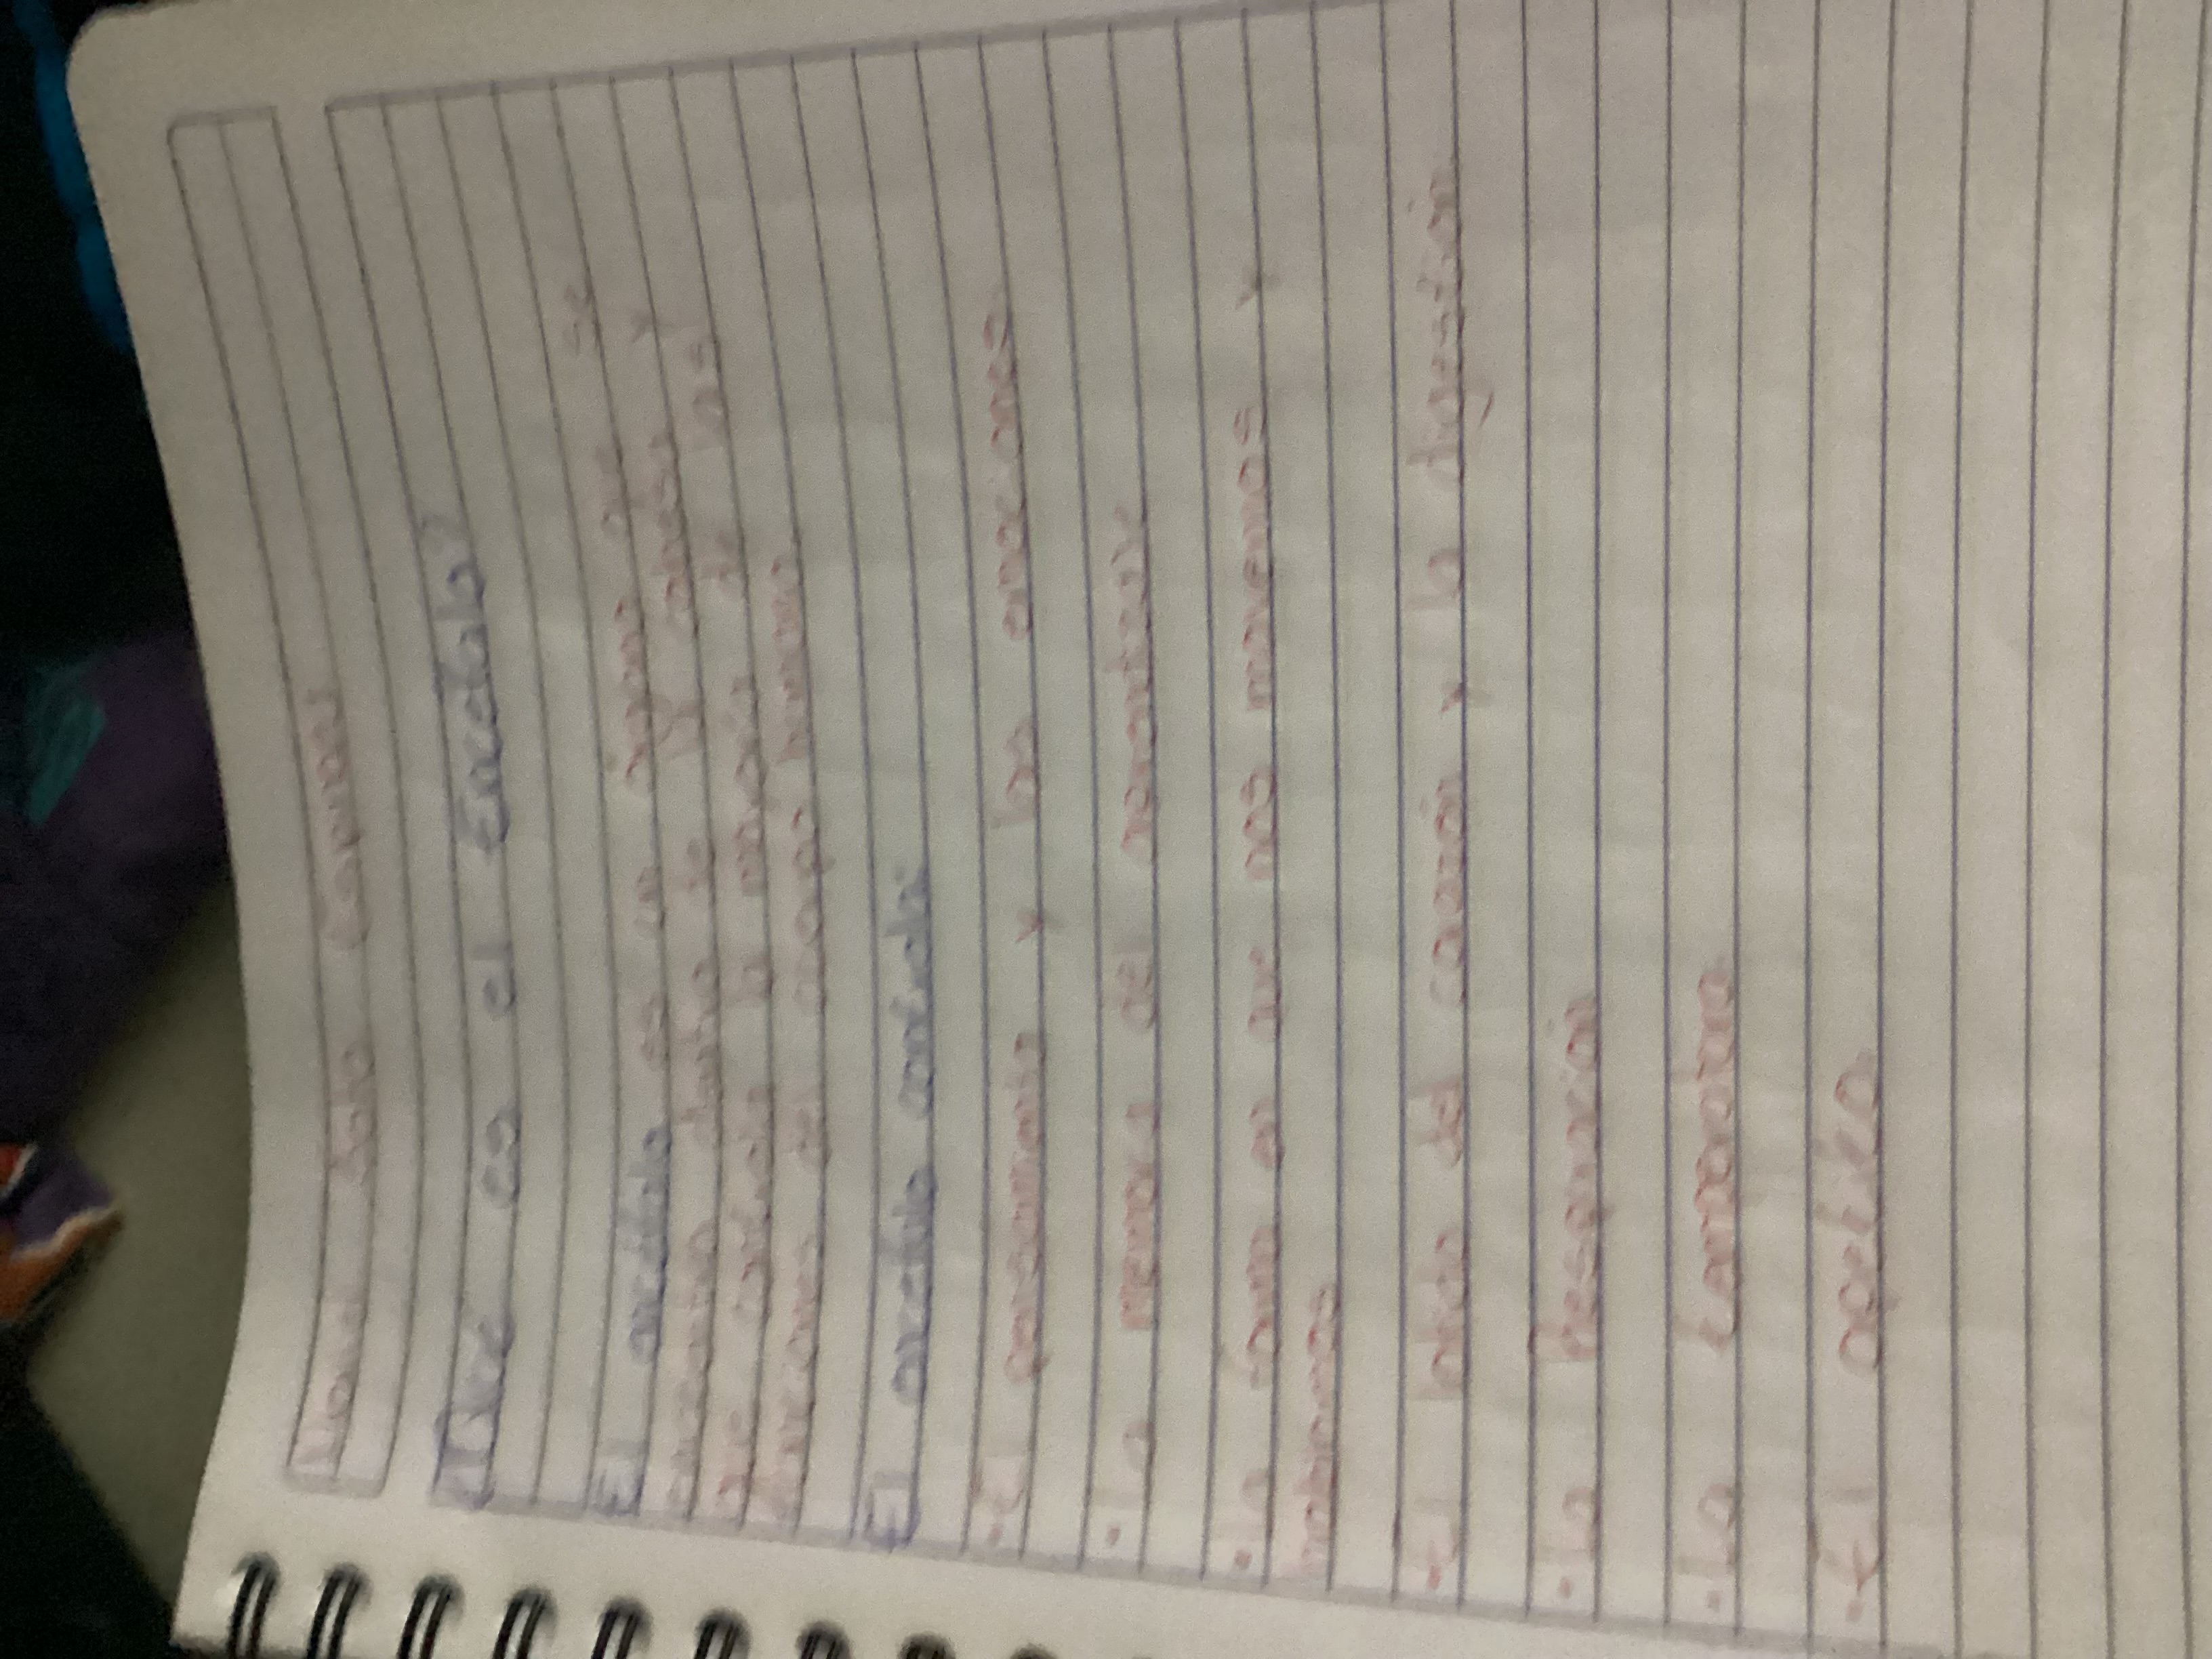 ¿Qué es el Encéfalo?
El encéfalo es un órgano que se
encuentra dentro de tu cabeza y
que controla la mayoría de las
funciones del cuerpo humano
El encéfalo controla:
-El pensamiento y las emociones
-La memoria del
-La forma en que nos movemos y
hablamos
-El latido del corazón y la digestión
-La Respiración
-La temperatura
-El apetito